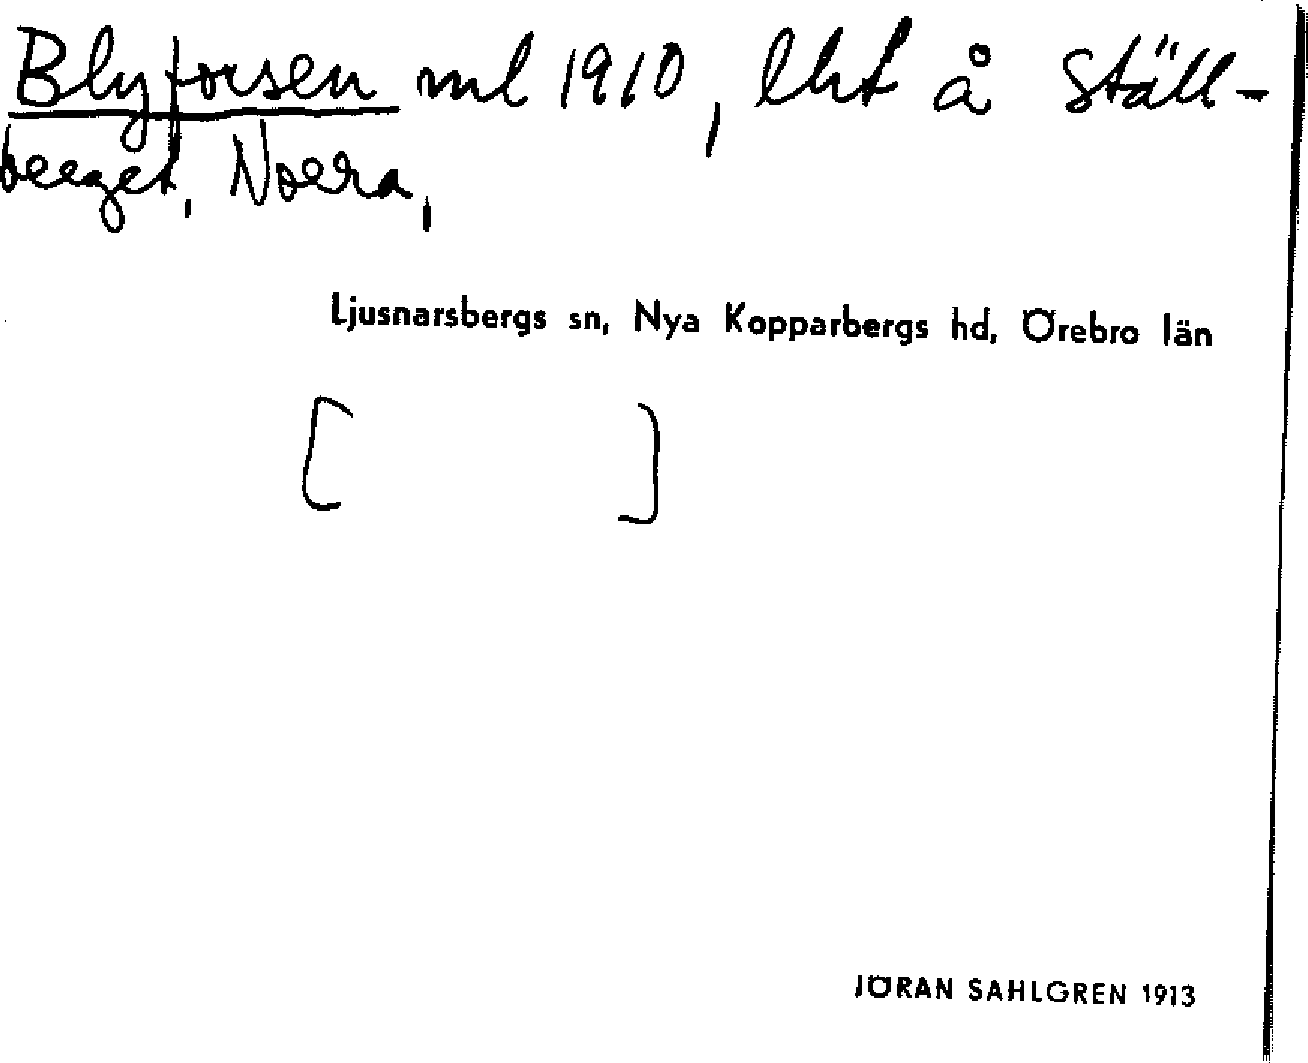 Blyforsen ml 1910, lht å Ställ-
berget, Norra,
Ljusnarsbergs sn, Nya Kopparbergs hd, Örebro län
[ ]
JÖRAN SAHLGREN 1913